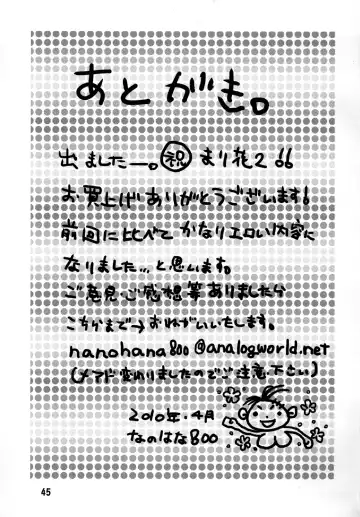 あとがき。
出ましたー。祝 まり花2!!
お買上げありがとうございます!
前回に比べて かなりエロい内容に
なりました…と思います。
ご意見・ご感想等ありましたら
こちらまで→おねがいいたします。
nanohana800@analogworld.net
(メアド変わりましたのでご注意下さい)
2010年・4月
なのはな800
45